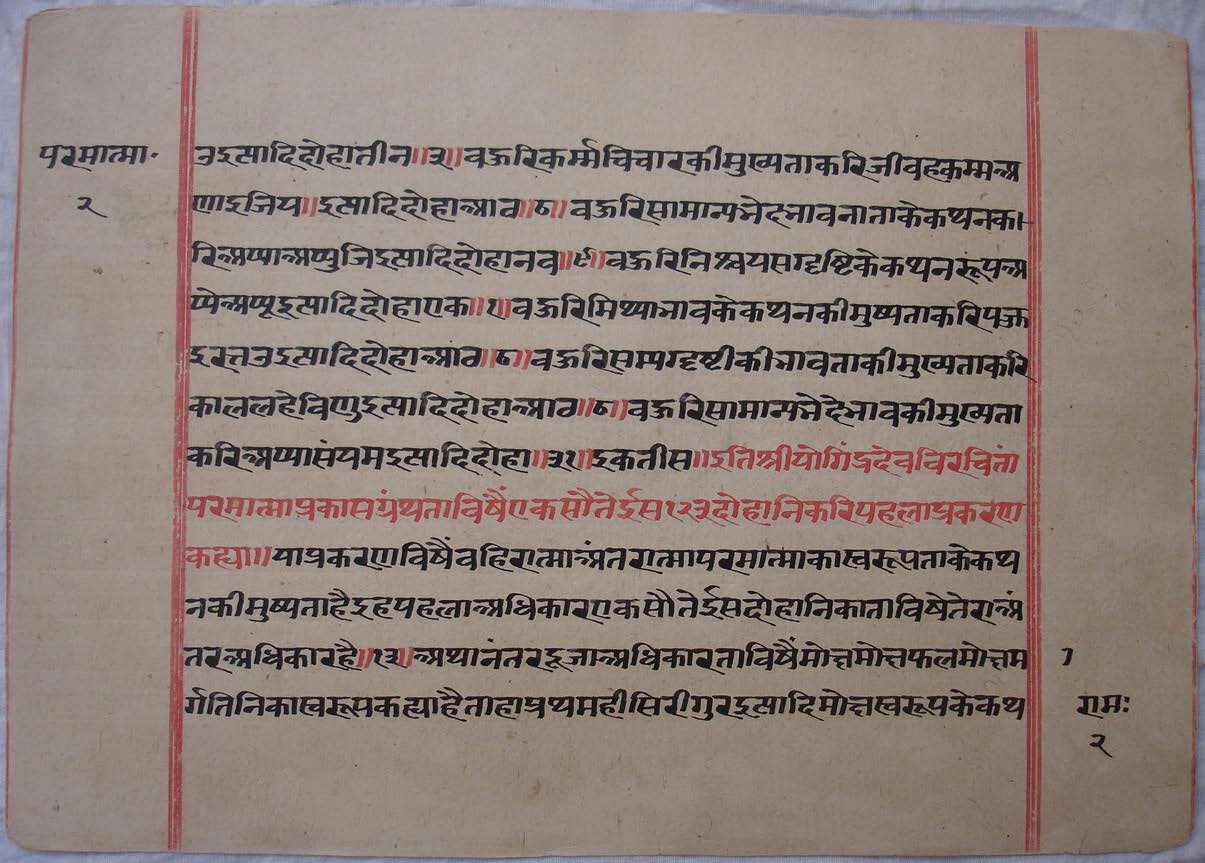 परमात्मा॰
२
उइत्यादिदोहातीन॥३॥वऊरिकर्म्मविचारकीमुख्यताकरिजीवहकम्मअ
णाइजिय॥इत्यादिदोहाआठ॥८॥वऊरिसामान्यभेदभावनाताकेकथनक
रिअप्पाअप्पुजिइत्यादिदोहानव॥९॥वऊरिनिश्चयसम्यग्दृष्टिकेकथनरूपअ
प्पेअप्पुइत्यादिदोहाएक॥१॥वऊरिमिथ्याभावकेकथनकीमुष्यताकरिपज्ज
इरत्तउइत्यादिदोहाआठ॥८॥वऊरिसम्यग्दृष्टीकीभावताकीमुख्यताकरि
काललहेविणुइत्यादिदोहाआठ॥८॥वऊरिसामान्यभेदभावकीमुख्यता
करिअप्पासंयमइत्यादिदोहा॥३१॥इकतीस॥इतिश्रीयोगिंद्रदेवविरचितां
परमात्माप्रकासग्रंथताविषैंएकसौतेईस१२३दोहानिकरिपहलाप्रकरण
कह्या॥याप्रकरणविषैंवहिरात्माअंतरात्मापरमात्माकास्वरूपताकेकथ
नकीमुष्यताहैइहपहलाअधिकारएकसौतेईसदोहानिकाताविषेतेराअं
तरअधिकारहै॥१३॥अथानंतरदूजाअधिकारताविषैंमोक्षमोक्षफलमोक्षम
र्गतिनिकास्वरूपकह्याहैताहाप्रथमहीसिरीगुरइत्यादिमोक्षस्वरूपकेकथ
रामः
२